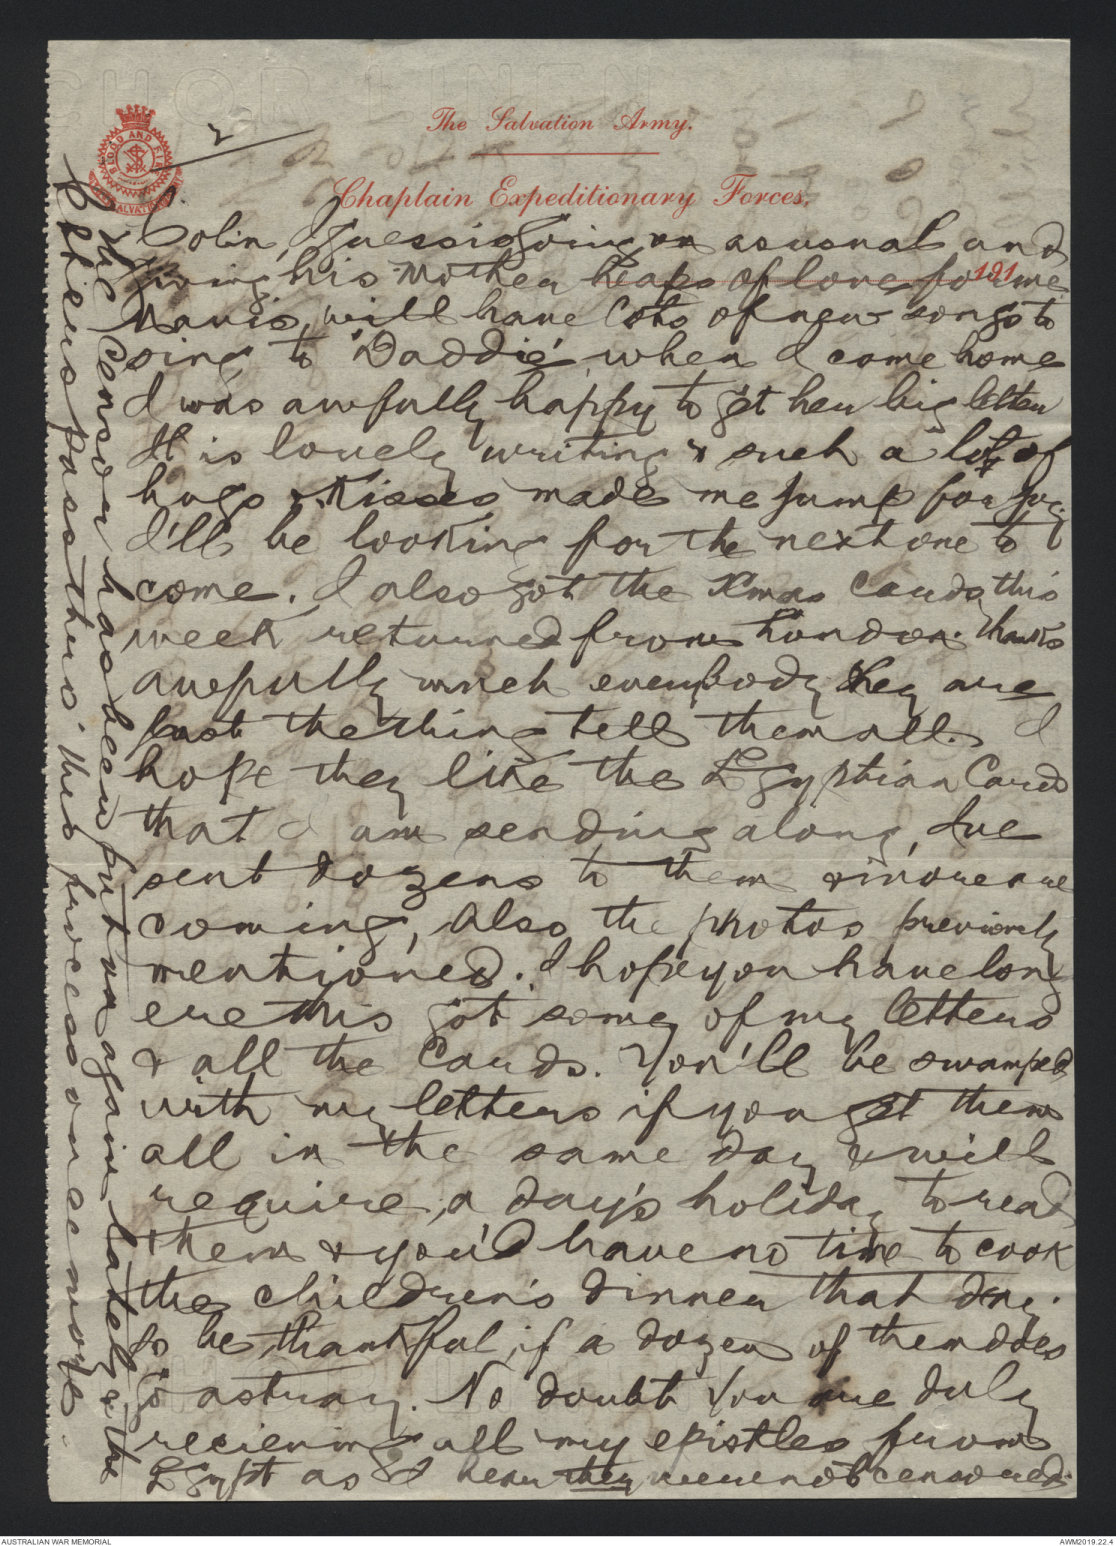 2
The Salvation Army.
Chaplain Expeditionary Forces.
BLOOD AND FIRE
191
Colin, I guess is going on as usual and
giving his Mother heaps of love for me
Mavis, will have lots of new songs to
sing to "Daddie" when I come home
I was awfully happy to get her big letter
It is lovely writing & such a lot of
hugs & Kisses made me jump for joy
I'll be looking for the next one to
come. I also got the Xmas Cards this
week returned from London. Thanks
awfully much everybody they are
just the thing tell them all. I
hope they like the Egyptian Cards
that I am sending along, I've
sent dozens to them & more are
coming, also the photos previously
mentioned. I hope you have long
ere this got some of my letters
& all the Cards. You'll be swamped
with my letters if you get them
all in the same day & will
require a day's holiday to read
them & you'd have no time to cook
the children's dinner that day.
So be thankful if a dozen of them does
go astray. No doubt you are duly
recieving all my epistles from
Egypt as I hear they were not censored.
The Censor has been put on again lately & the
letters pass thro' this process once more.
AUSTRALIAN WAR MEMORIAL
AWM2019.22.4